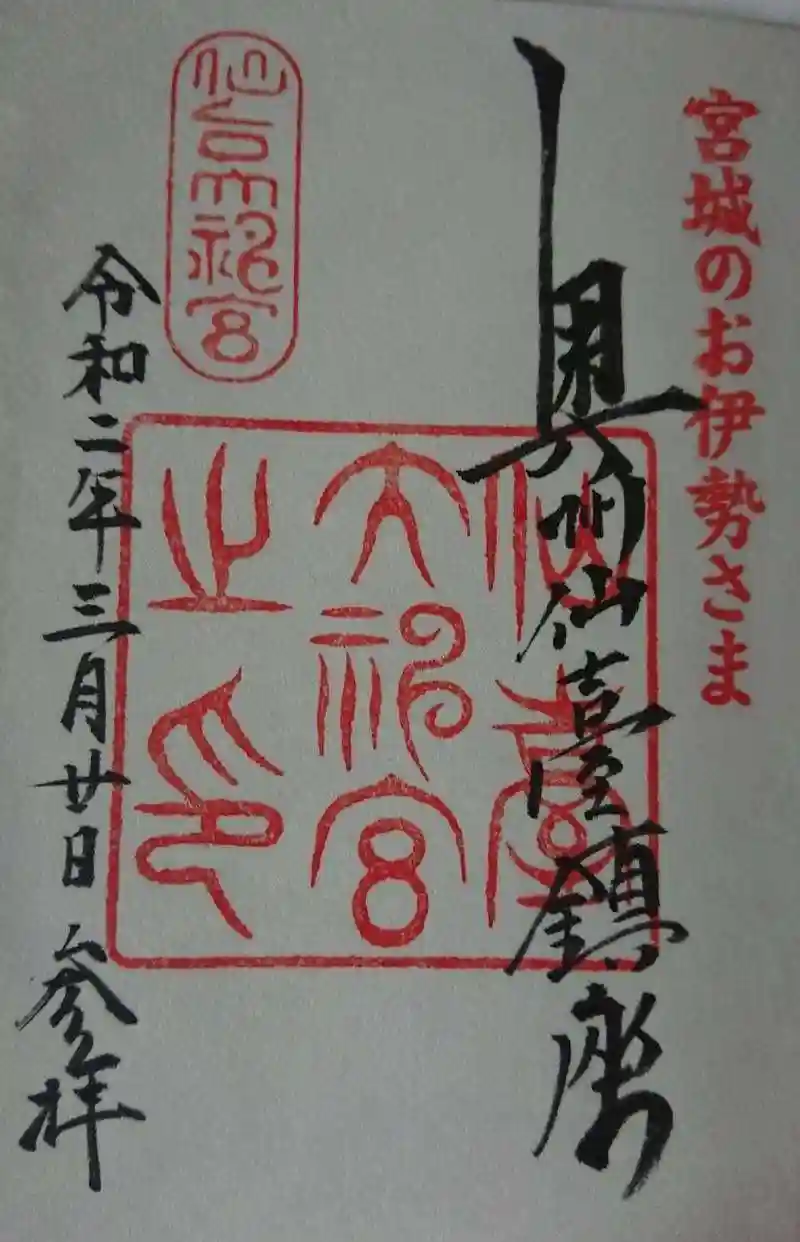 宮城のお伊勢さま
奥州仙臺鎮座
仙台大神宮
仙臺大神宮之印
令和二年三月廿日 参拝